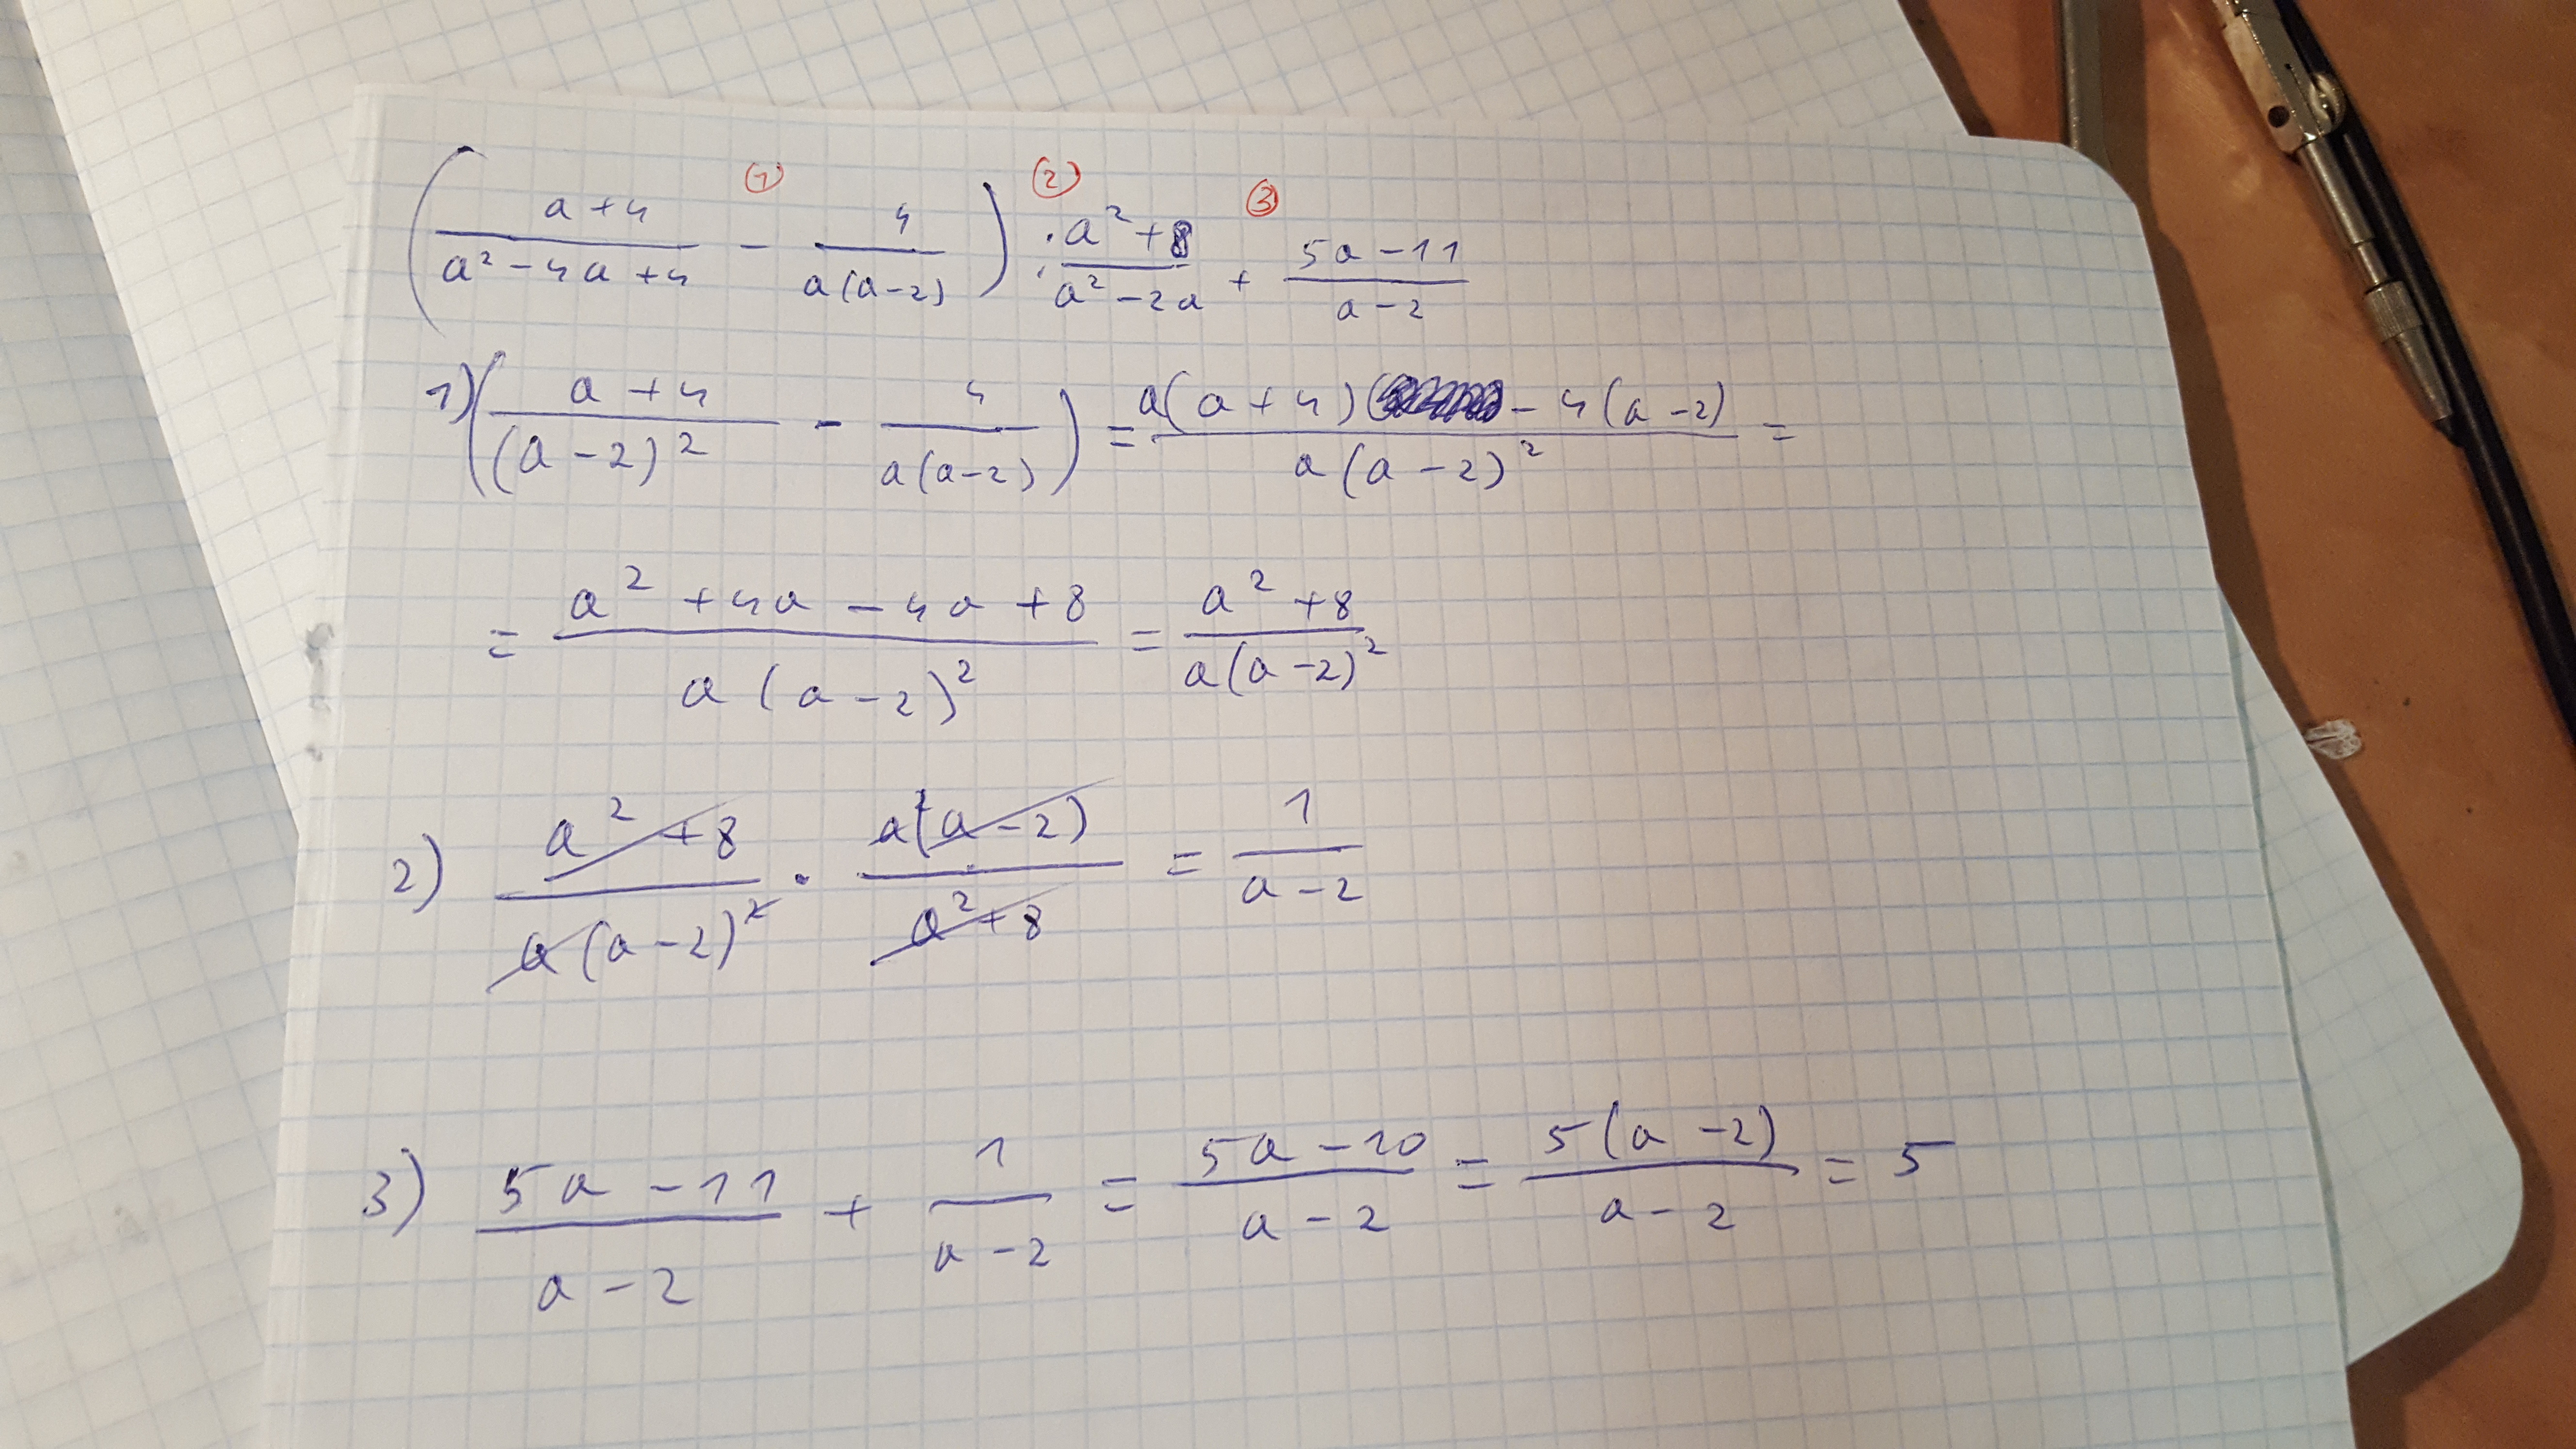 ( (a+4)/(a²-4a+4) - 4/(a(a-2)) ) : (a²+8)/(a²-2a) + (5a-11)/(a-2)
① ② ③
1) ( (a+4)/((a-2)²) - 4/(a(a-2)) ) = (a(a+4) - 4(a-2))/(a(a-2)²) =
= (a²+4a-4a+8)/(a(a-2)²) = (a²+8)/(a(a-2)²)
2) (a²+8)/(a(a-2)²) · (a(a-2))/(a²+8) = 1/(a-2)
3) (5a-11)/(a-2) + 1/(a-2) = (5a-10)/(a-2) = (5(a-2))/(a-2) = 5